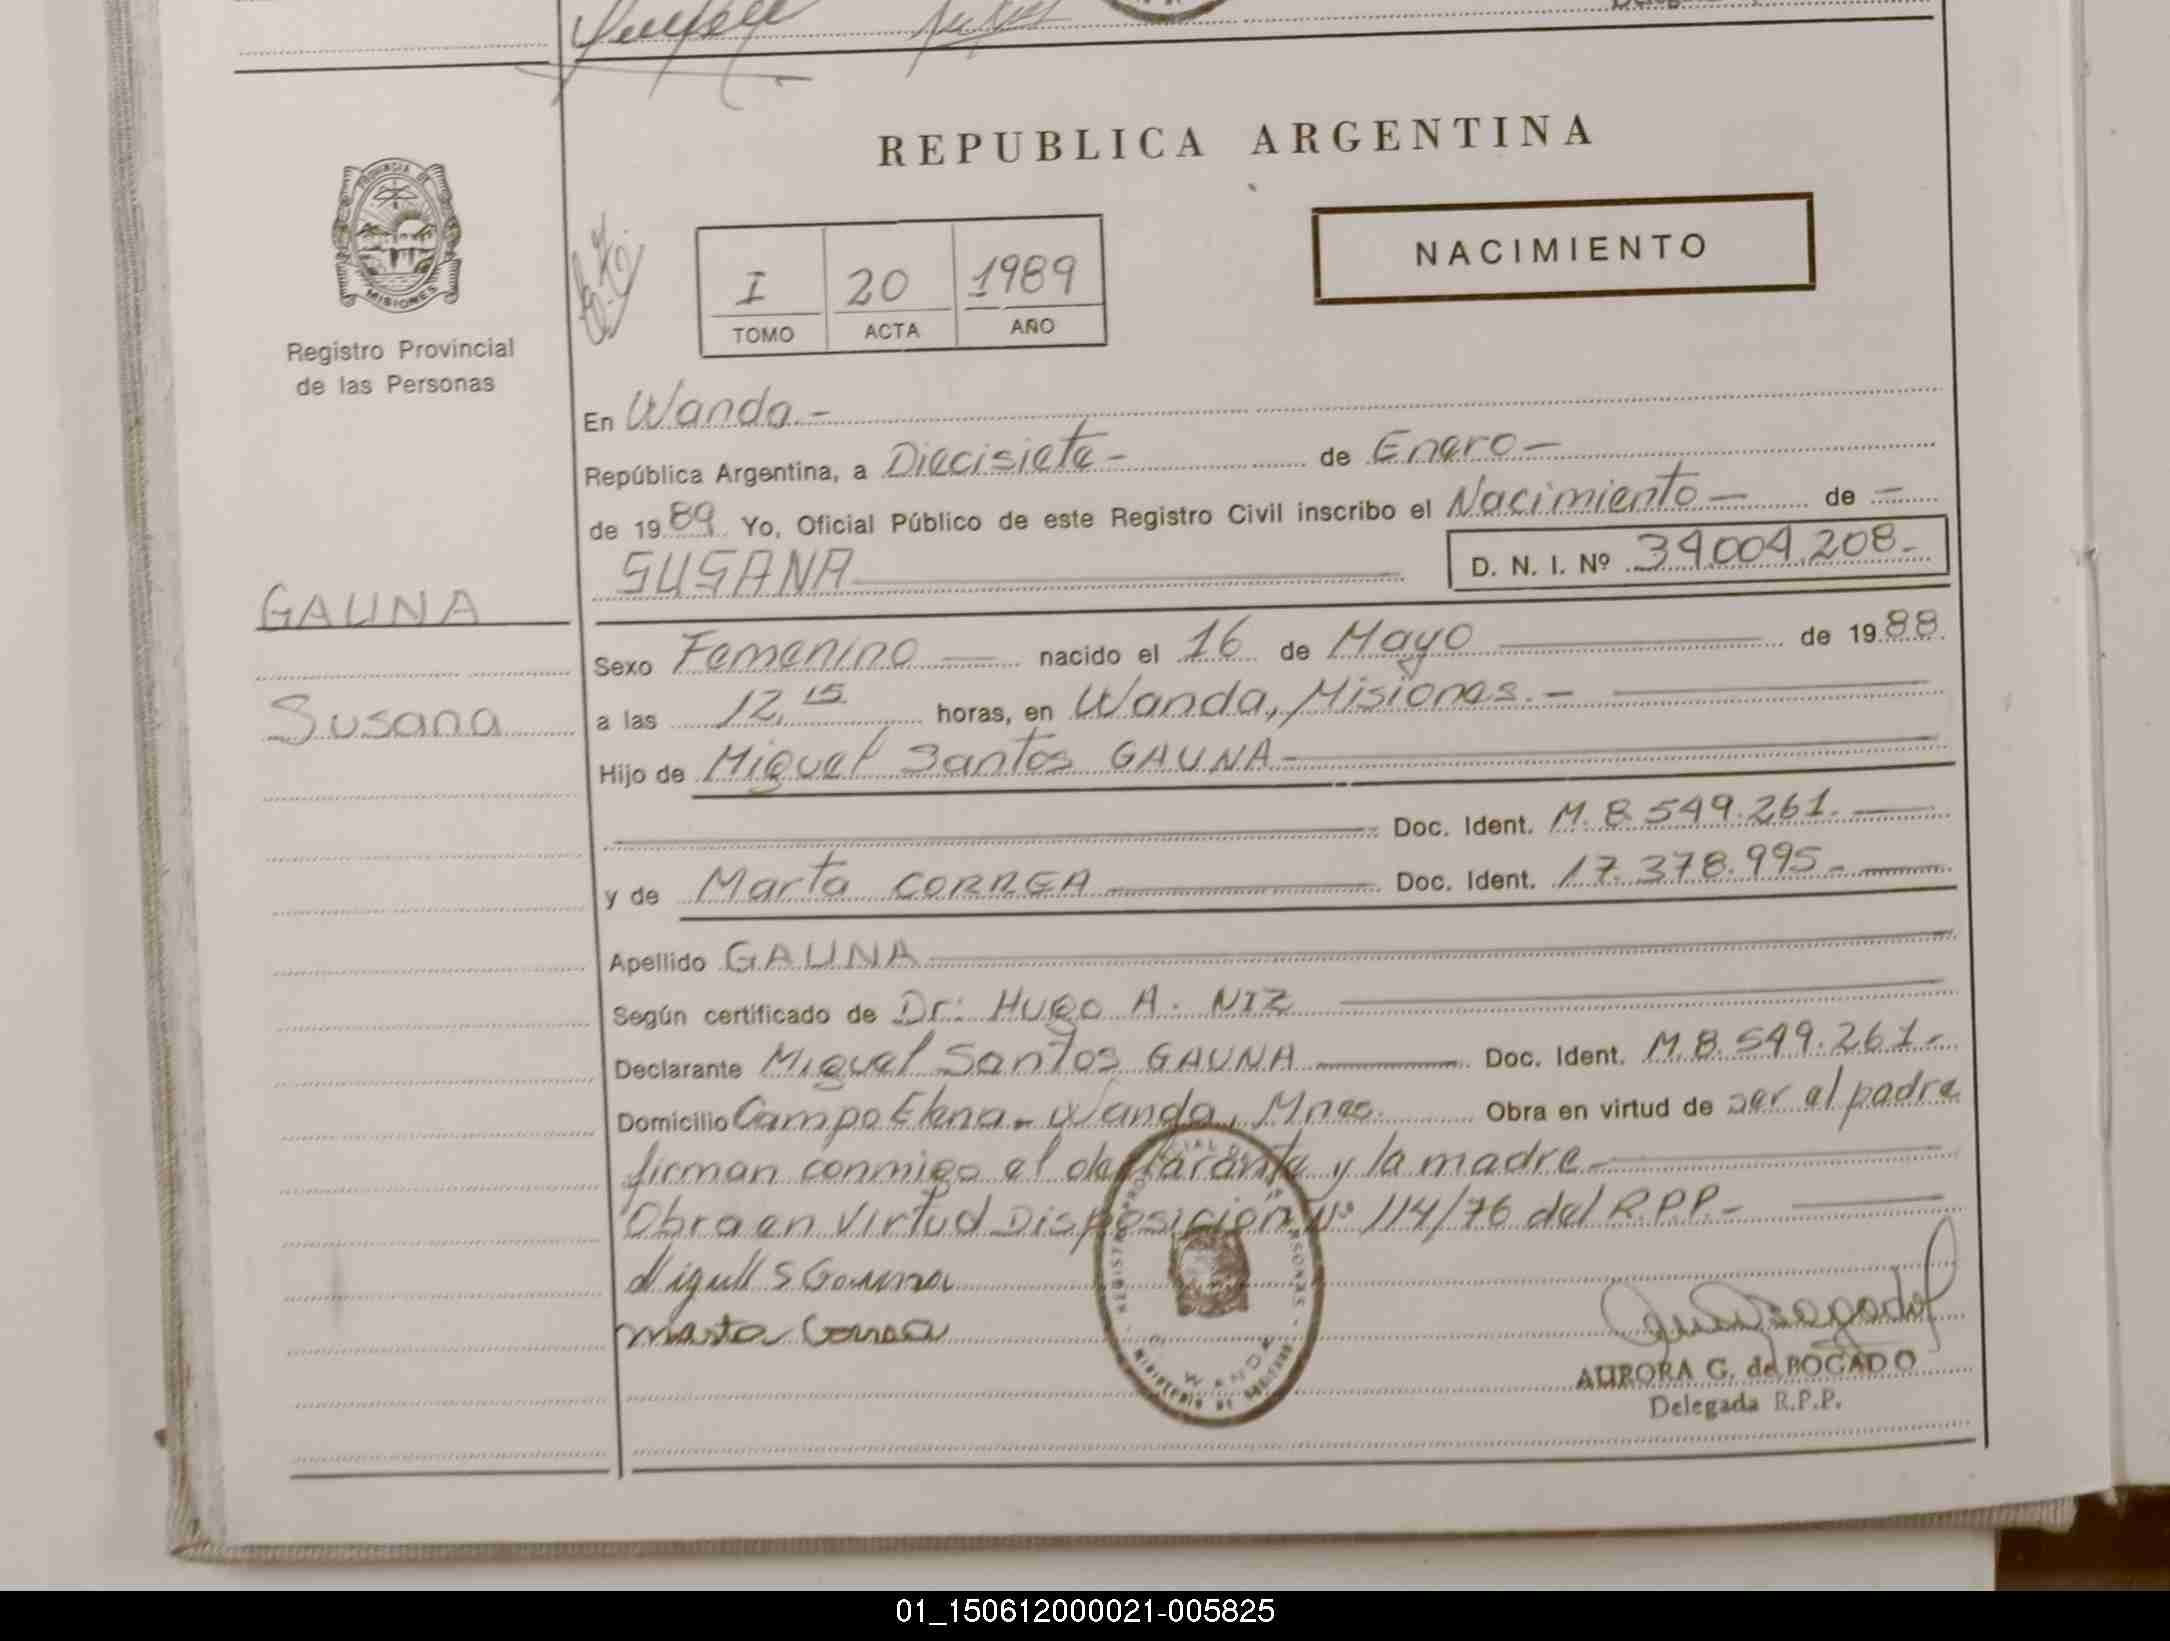 REPUBLICA ARGENTINA
PROVINCIA DE
MISIONES
Registro Provincial
de las Personas
NACIMIENTO
I 20 1989
TOMO ACTA AÑO
En Wanda.-
República Argentina, a Diecisiete- de Enero-
de 1989 Yo, Oficial Público de este Registro Civil inscribo el Nacimiento- de -
SUSANA D. N. I. Nº 34.004.208-
GAUNA
Sexo Femenino nacido el 16 de Mayo de 1988.
Susana
a las 12,15 horas, en Wanda, Misiones.-
Hijo de Miguel Santos GAUNA
Doc. Ident. M. 8.549.261.
y de Marta CORREA Doc. Ident. 17.378.995-
Apellido GAUNA
Según certificado de Dr: Hugo A. NIZ
Declarante Miguel Santos GAUNA Doc. Ident. M.8.549.261-
Domicilio Campo Elena- Wanda, Mnes. Obra en virtud de ser el padre
firman conmigo el declarante y la madre-
Obra en Virtud Disposición Nº 114/76 del R.P.P.-
Miguel S Gauna
Marta Correa
WANDA
AURORA G. de BOGADO
Delegada R.P.P.
01_150612000021-005825